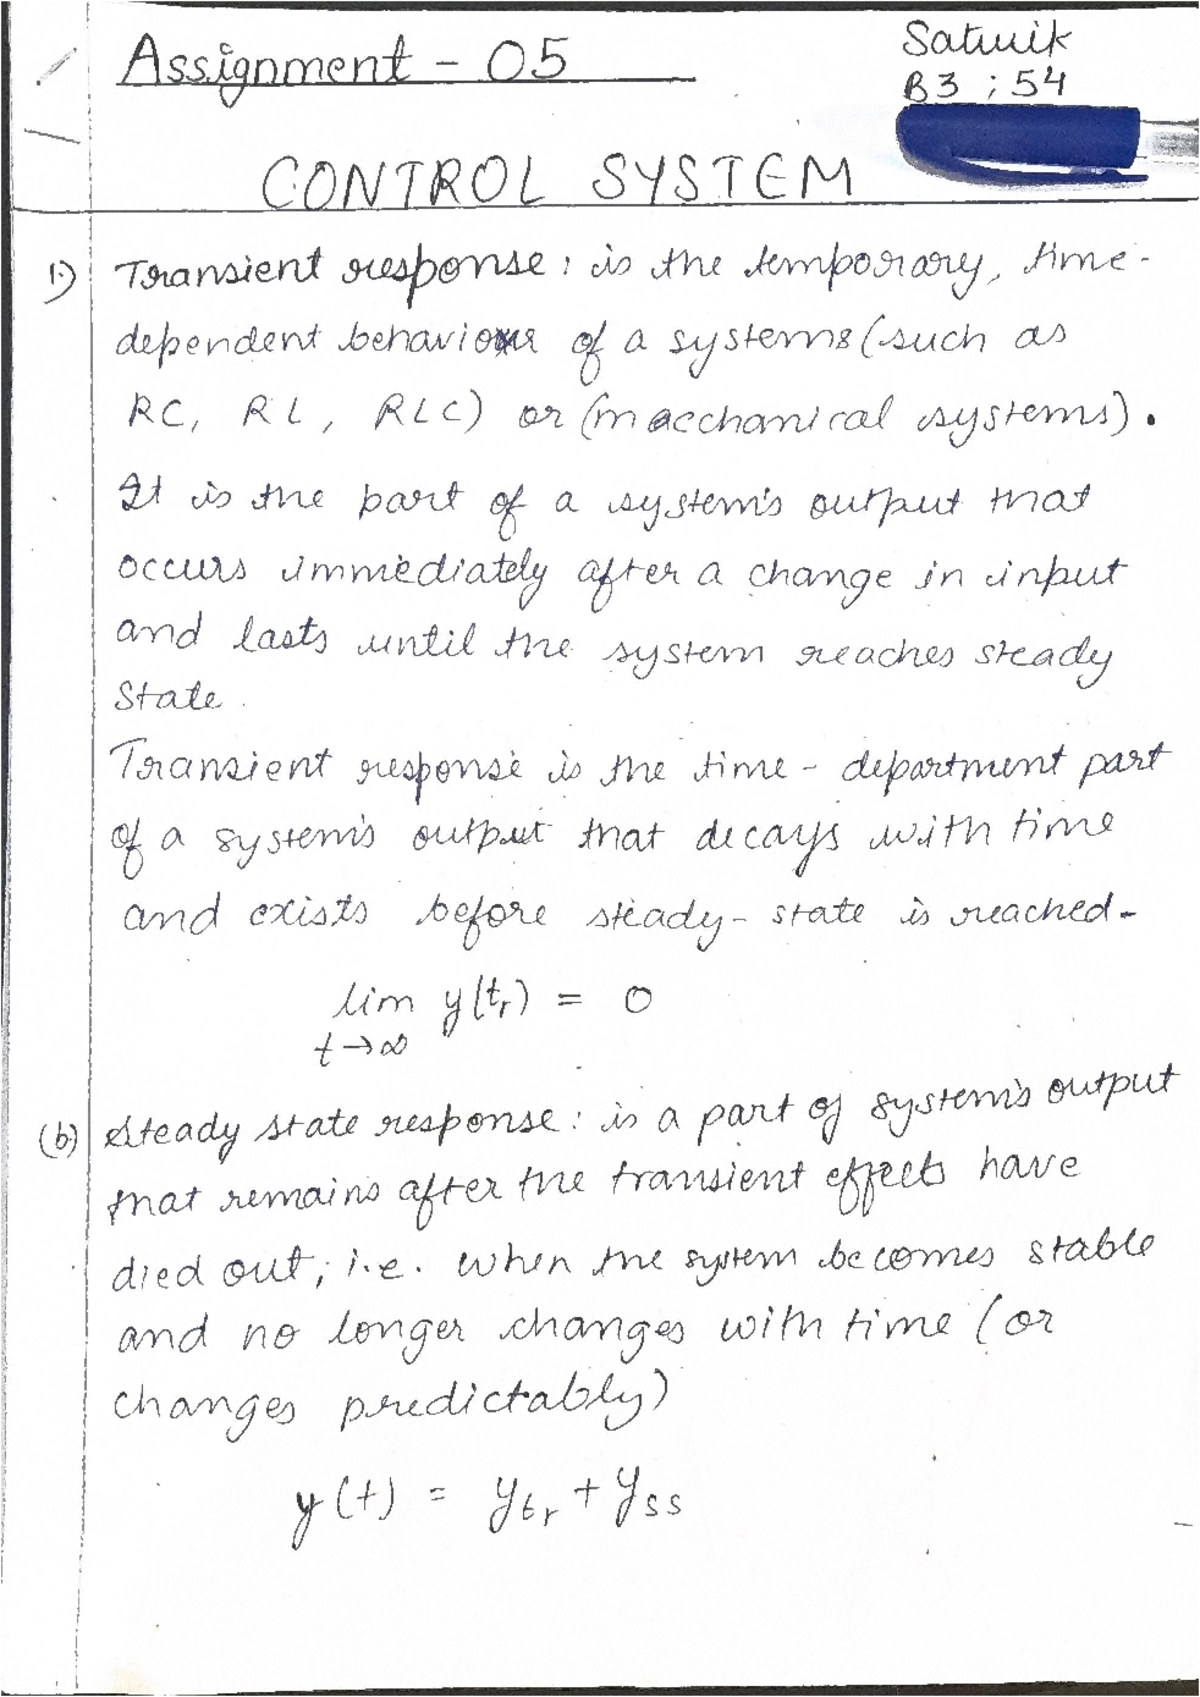 Assignment - 05
Satwik
B3 ; 54
CONTROL SYSTEM
1.) Transient response : is the temporary, time-
dependent behaviour of a systems (such as
RC, RL, RLC) or (macchanical systems).
It is the part of a system's output that
occurs immediately after a change in input
and lasts until the system reaches steady
state.
Transient response is the time - department part
of a system's output that decays with time
and exists before steady - state is reached -
lim y(tr) = 0
t→∞
(b) Steady state response : is a part of system's output
that remains after the transient effects have
died out, i.e. when the system becomes stable
and no longer changes with time (or
changes predictably)
y(t) = ytr + yss